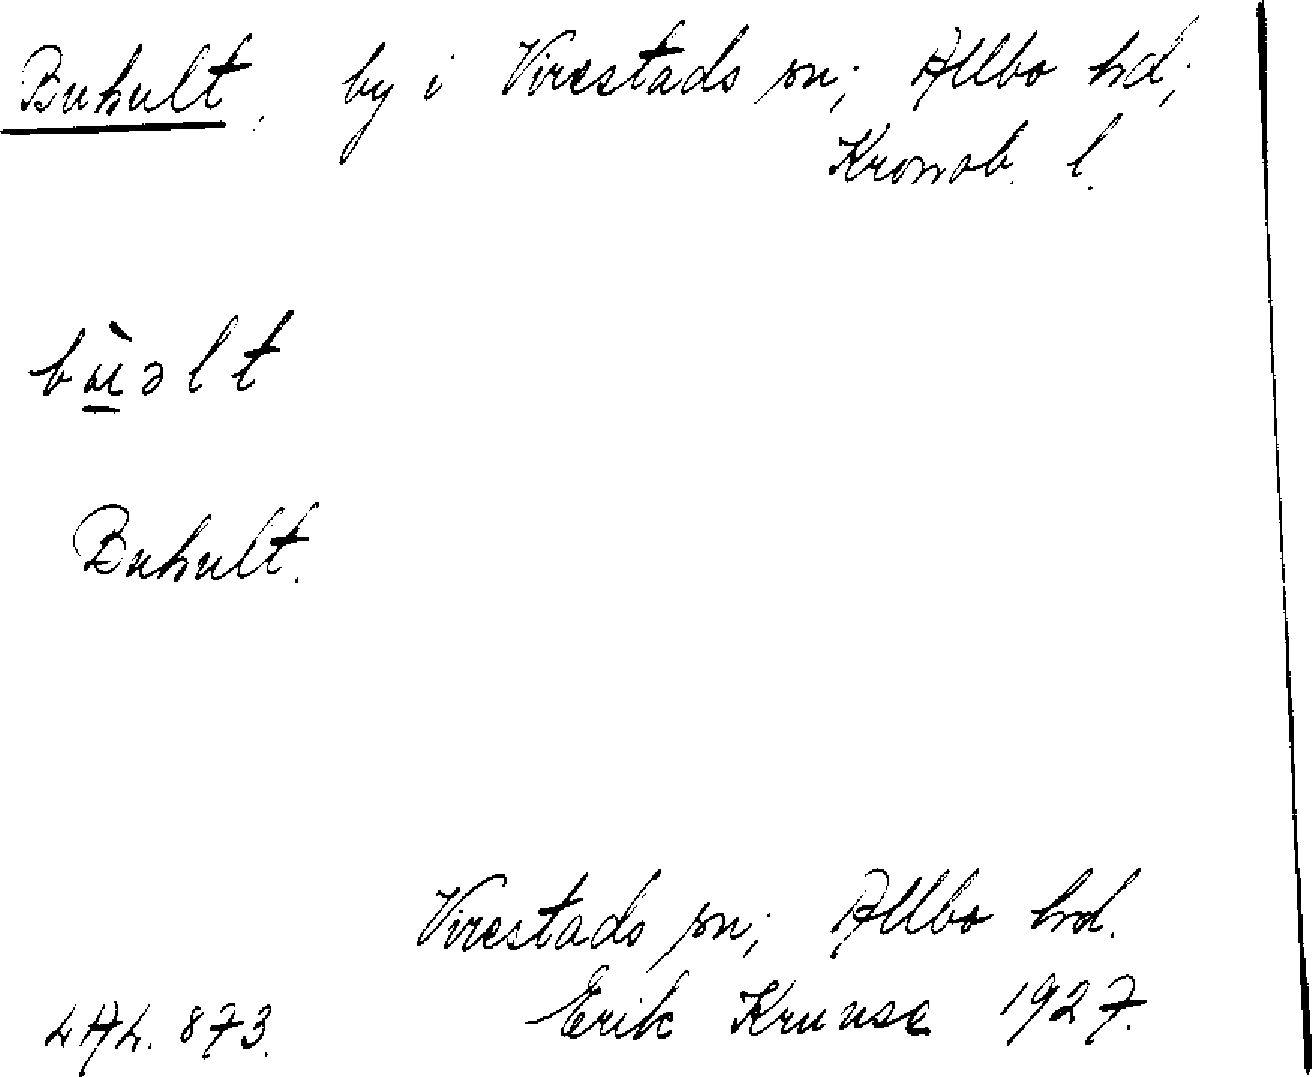 Buhult, by i Virestads sn; Allbo hd;
Kronob. l.
bù̲əlt
Buhult.
Virestads sn; Allbo hd.
Erik Kruuse 1927.
LAL. 873.